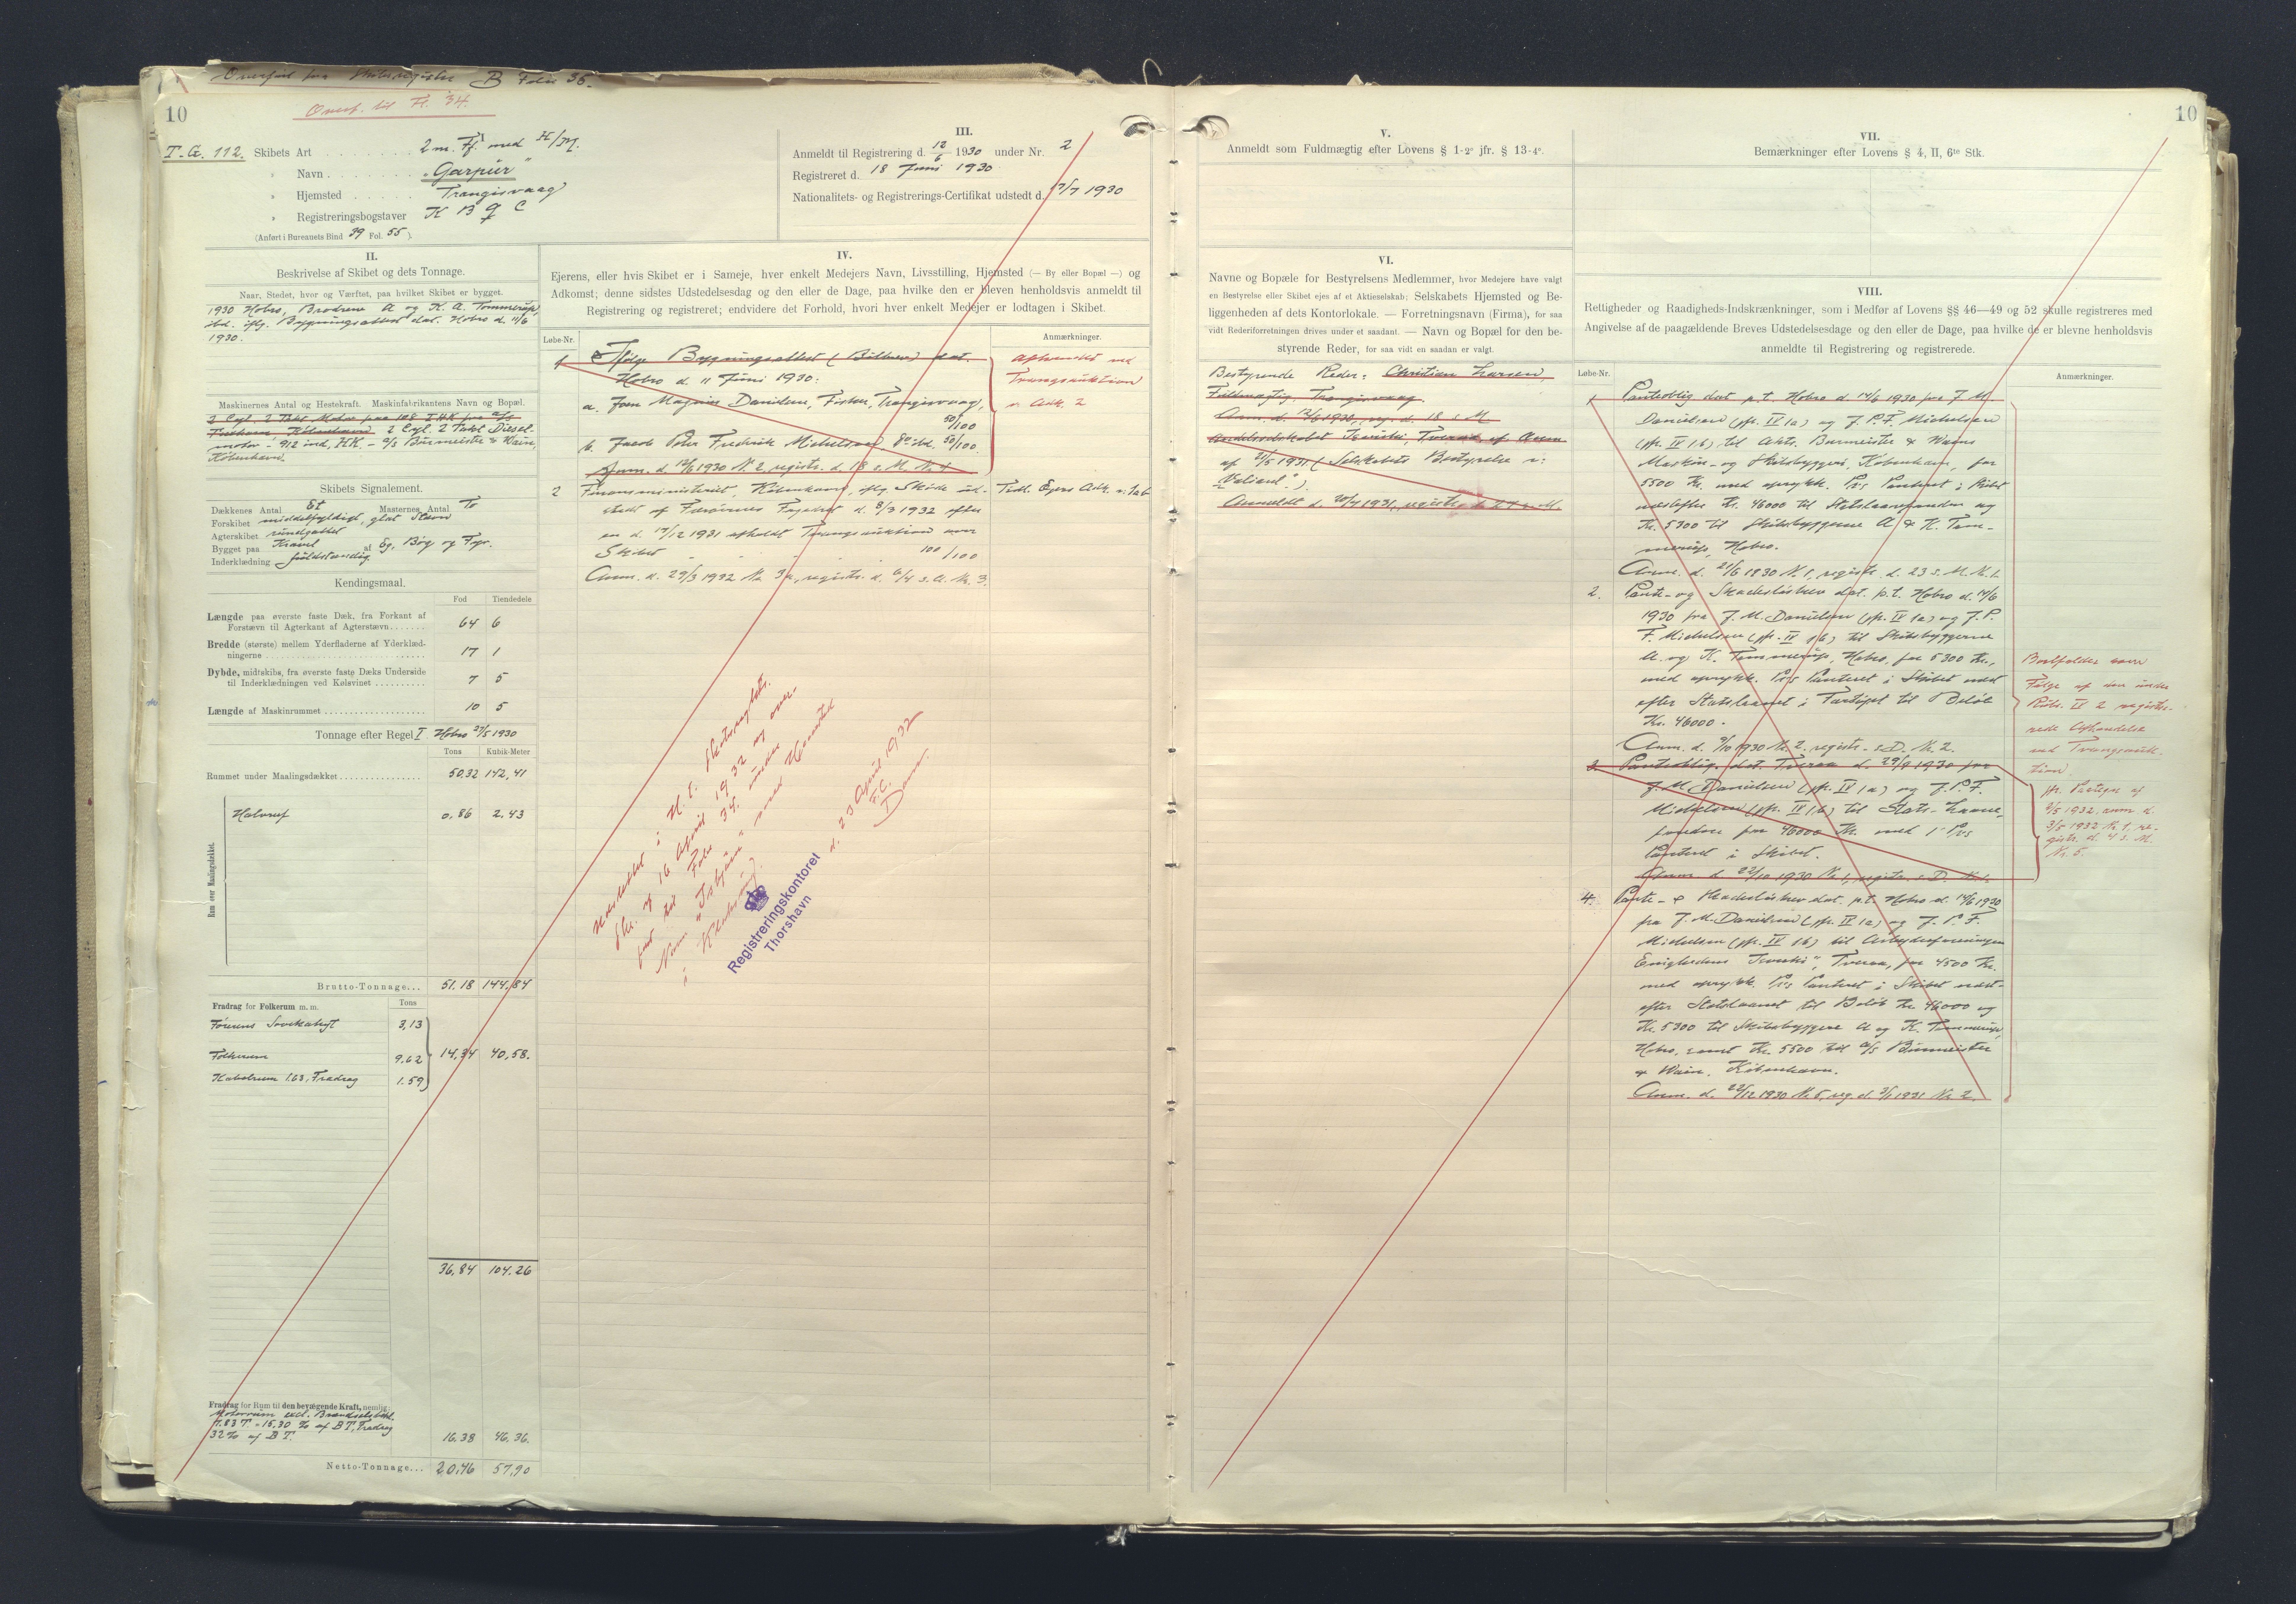 Overført fra Skibsregister B Folio 36.
Overf. til Fl. 34.
10
T.G. 112. Skibets Art . . . . . . . . 2 m. Ff. med H/M.
" Navn . . . . . . . . "Garpur"
" Hjemsted . . . . . Trangisvaag
" Registreringsbogstaver K B Q C
(Anført i Bureauets Bind 39 Fol. 55 ).
III.
Anmeldt til Registrering d. 12/6 1930 under Nr. 2
Registreret d. 18 Juni 1930
Nationalitets- og Registrerings-Certifikat udstedt d. 17/7 1930
II.
Beskrivelse af Skibet og dets Tonnage.
Naar, Stedet, hvor og Værftet, paa hvilket Skibet er bygget.
1930 Hobro, Brødrene A og K. A. Tommerup,
ibd. iflg. Bygningsattest dat. Hobro d. 11/6
1930.
Maskinernes Antal og Hestekraft. Maskinfabrikantens Navn og Bopæl.
2 Cyl. 2 Takt Motor, paa 108 I.H.K. fra A/S
København 2 Cyl. 2 Takt Diesel-
motor - 912 ind. HK. - A/S Burmeister & Wain,
København.
Skibets Signalement.
Dækkenes Antal Et Masternes Antal To
Forskibet middelfyldigt, glat Stævn
Agterskibet rundgattet
Bygget paa Kravel af Eg, Bøg og Fyr.
Inderklædning fuldstændig
Kendingsmaal.
Fod Tiendedele
Længde paa øverste faste Dæk, fra Forkant af
Forstævn til Agterkant af Agterstævn....... 64 6
Bredde (største) mellem Yderfladerne af Yderklæd-
ningerne ........ 17 1
Dybde, midtskibs, fra øverste faste Dæks Underside
til Inderklædningen ved Kølsvinet .......... 7 5
Længde af Maskinrummet .................... 10 5
Tonnage efter Regel I Hobro 27/5 1930
Tons Kubik-Meter
Rummet under Maalingsdækket................ 50.32 142,41
Rum over Maalingsdækket.
Halvruf 0,86 2.43
Brutto-Tonnage... 51,18 144,84
Fradrag for Folkerum m. m. Tons
Førerens Sovekahyt 3,13
Folkerum 9.62 14,34 40,58.
Kabelrum 1.63, Fradrag 1.59
36,84 104.26
Fradrag for Rum til den bevægende Kraft, nemlig:
Motorrum excl. Brændselsbeh.
7.83 T = 15,30 % af B T, Fradrag
32% af B T. 16,38 46,36.
Netto-Tonnage... 20,46 57,90
IV.
Ejerens, eller hvis Skibet er i Sameje, hver enkelt Medejers Navn, Livsstilling, Hjemsted (— By eller Bopæl —) og
Adkomst; denne sidstes Udstedelsesdag og den eller de Dage, paa hvilke den er bleven henholdsvis anmeldt til
Registrering og registreret; endvidere det Forhold, hvori hver enkelt Medejer er lodtagen i Skibet.
Løbe-Nr. Anmærkninger.
1 Ifølge Bygningsattest (Bilbrev) dat.
Hobro d. 11 Juni 1930:
a. Joen Magnus Danielsen, Fisker, Trangisvaag,
50/100
b. Jacob Peter Fredrik Michelsen, do ibd. 50/100.
Anm. d. 12/6 1930 Nr. 2, registr. d. 18 s. M. Nr. 1
Afhændet ved
Tvangsauktion
cfr. Adk. 2
2 Finansministeriet, København, iflg. Skøde ud-
stedt af Færøernes Fogedret d. 8/3 1932 efter
en d. 17/12 1931 afholdt Tvangsauktion over
Skibet - - - 100/100
Anm. d. 29/3 1932 Nr. 3a, registr. d. 6/4 s. A. Nr. 3.
Tidl. Ejers Adk. n. 1 a b
Udslettet i H. t. Skibsregistr.
Skr. af 16 April 1932 og over-
ført til Folio 34. under
Navn "Isbjørn" med Hjemsted
i Klaksvig.
d. 23 April 1932
F. C.
Dam.
Registreringskontoret
Thorshavn
V.
Anmeldt som Fuldmægtig efter Lovens § 1-2° jfr. § 13-4°.
VI.
Navne og Bopæle for Bestyrelsens Medlemmer, hvor Medejere have valgt
en Bestyrelse eller Skibet ejes af et Aktieselskab; Selskabets Hjemsted og Be-
liggenheden af dets Kontorlokale. — Forretningsnavn (Firma), for saa
vidt Rederiforretningen drives under et saadant. — Navn og Bopæl for den be-
styrende Reder, for saa vidt en saadan er valgt.
Bestyrende Reder: Christian Larsen,
Fuldmægtig, Trangisvaag.
Anm. d. 12/6 1930, reg. d. 18 s. M.
Andelsselskabet Tvøroyri, Tveraa, af Anm
af 21/5 1931 (Selskabets Bestyrelse v:
"Valsard").
Anmeldt d. 20/7 1931, registr. d. 27 s. M.
VII.
Bemærkninger efter Lovens § 4, II, 6te Stk.
10
VIII.
Rettigheder og Raadigheds-Indskrænkninger, som i Medfør af Lovens §§ 46—49 og 52 skulle registreres med
Angivelse af de paagældende Breves Udstedelsesdage og den eller de Dage, paa hvilke de er blevne henholdsvis
anmeldte til Registrering og registrerede.
Løbe-Nr. Anmærkninger.
1 Panteoblig. dat. p. t. Hobro d. 14/6 1930 fra J. M.
Danielsen (jfr. IV 1a) og J. P. F. Michelsen
(jfr. IV 1.b) til Akts. Burmeister & Wains
Maskin- og Skibsbyggeri, København, for
5500 Kr. med oprykk. Prs Panteret i Skibet
næstefter Kr. 46000 til Statslaanefonden og
Kr. 5300 til Skibsbyggerne A & K. Tom-
merup, Hobro.
Anm. d. 21/6 1930 N. 1, registr. d. 23 s. M. Nr. 1.
2. Pante- og Skadesløsbrev dat. p. t. Hobro d. 14/6
1930 fra J. M. Danielsen (jfr. IV 1a) og J. P.
F. Michelsen (jfr. IV 1b) til Skibsbyggerne
A. og K. Tommerup, Hobro, for 5300 Kr.,
med oprykk. Prs Panteret i Skibet næst
efter Statslaanet i Fartøjet til Beløb
Kr. 46000.
Anm. d. 9/10 1930 N. 2. registr. s. D. Nr. 2.
3. Panteoblig. dat. Tveraa d. 29/9 1930 fra
J. M. Danielsen (jfr. IV 1 a) og J. P. F.
Michelsen (jfr. IV 1.b) til Stats-Laane-
fonden for 46000 Kr. med 1' Prs
Panteret i Skibet.
Anm. d. 22/10 1930 Nr. 1, registr. s. D. Nr. 1.
4. Pante- & Skadesløsbrev dat. p. t. Hobro d. 14/6 1930
fra J. M. Danielsen (jfr. IV 1a) og J. P. F.
Michelsen (jfr. IV 1b) til Arbejderforeningen
Enighedens Tvøroyri", Tveraa, for 4500 Kr.
med oprykk. Prs Panteret i Skibet næst-
efter Statslaanet til Beløb Kr. 46000 og
Kr. 5300 til Skibsbyggerne A og K. Tommerup,
Hobro, samt Kr. 5500 til A/S Burmeister
& Wain, København.
Anm. d. 22/12 1930 Nr. 5, reg. d. 3/1 1931 Nr. 2.
Bortfalder som
Følge af den under
Rubr. IV 2 registre-
rede Afhændelse
ved Tvangsauk-
tion
jfr. Paategn. af
2/5 1932, anm d.
3/5 1932 Nr. 1, re-
gistr. d. 4 s. M.
Nr. 5.